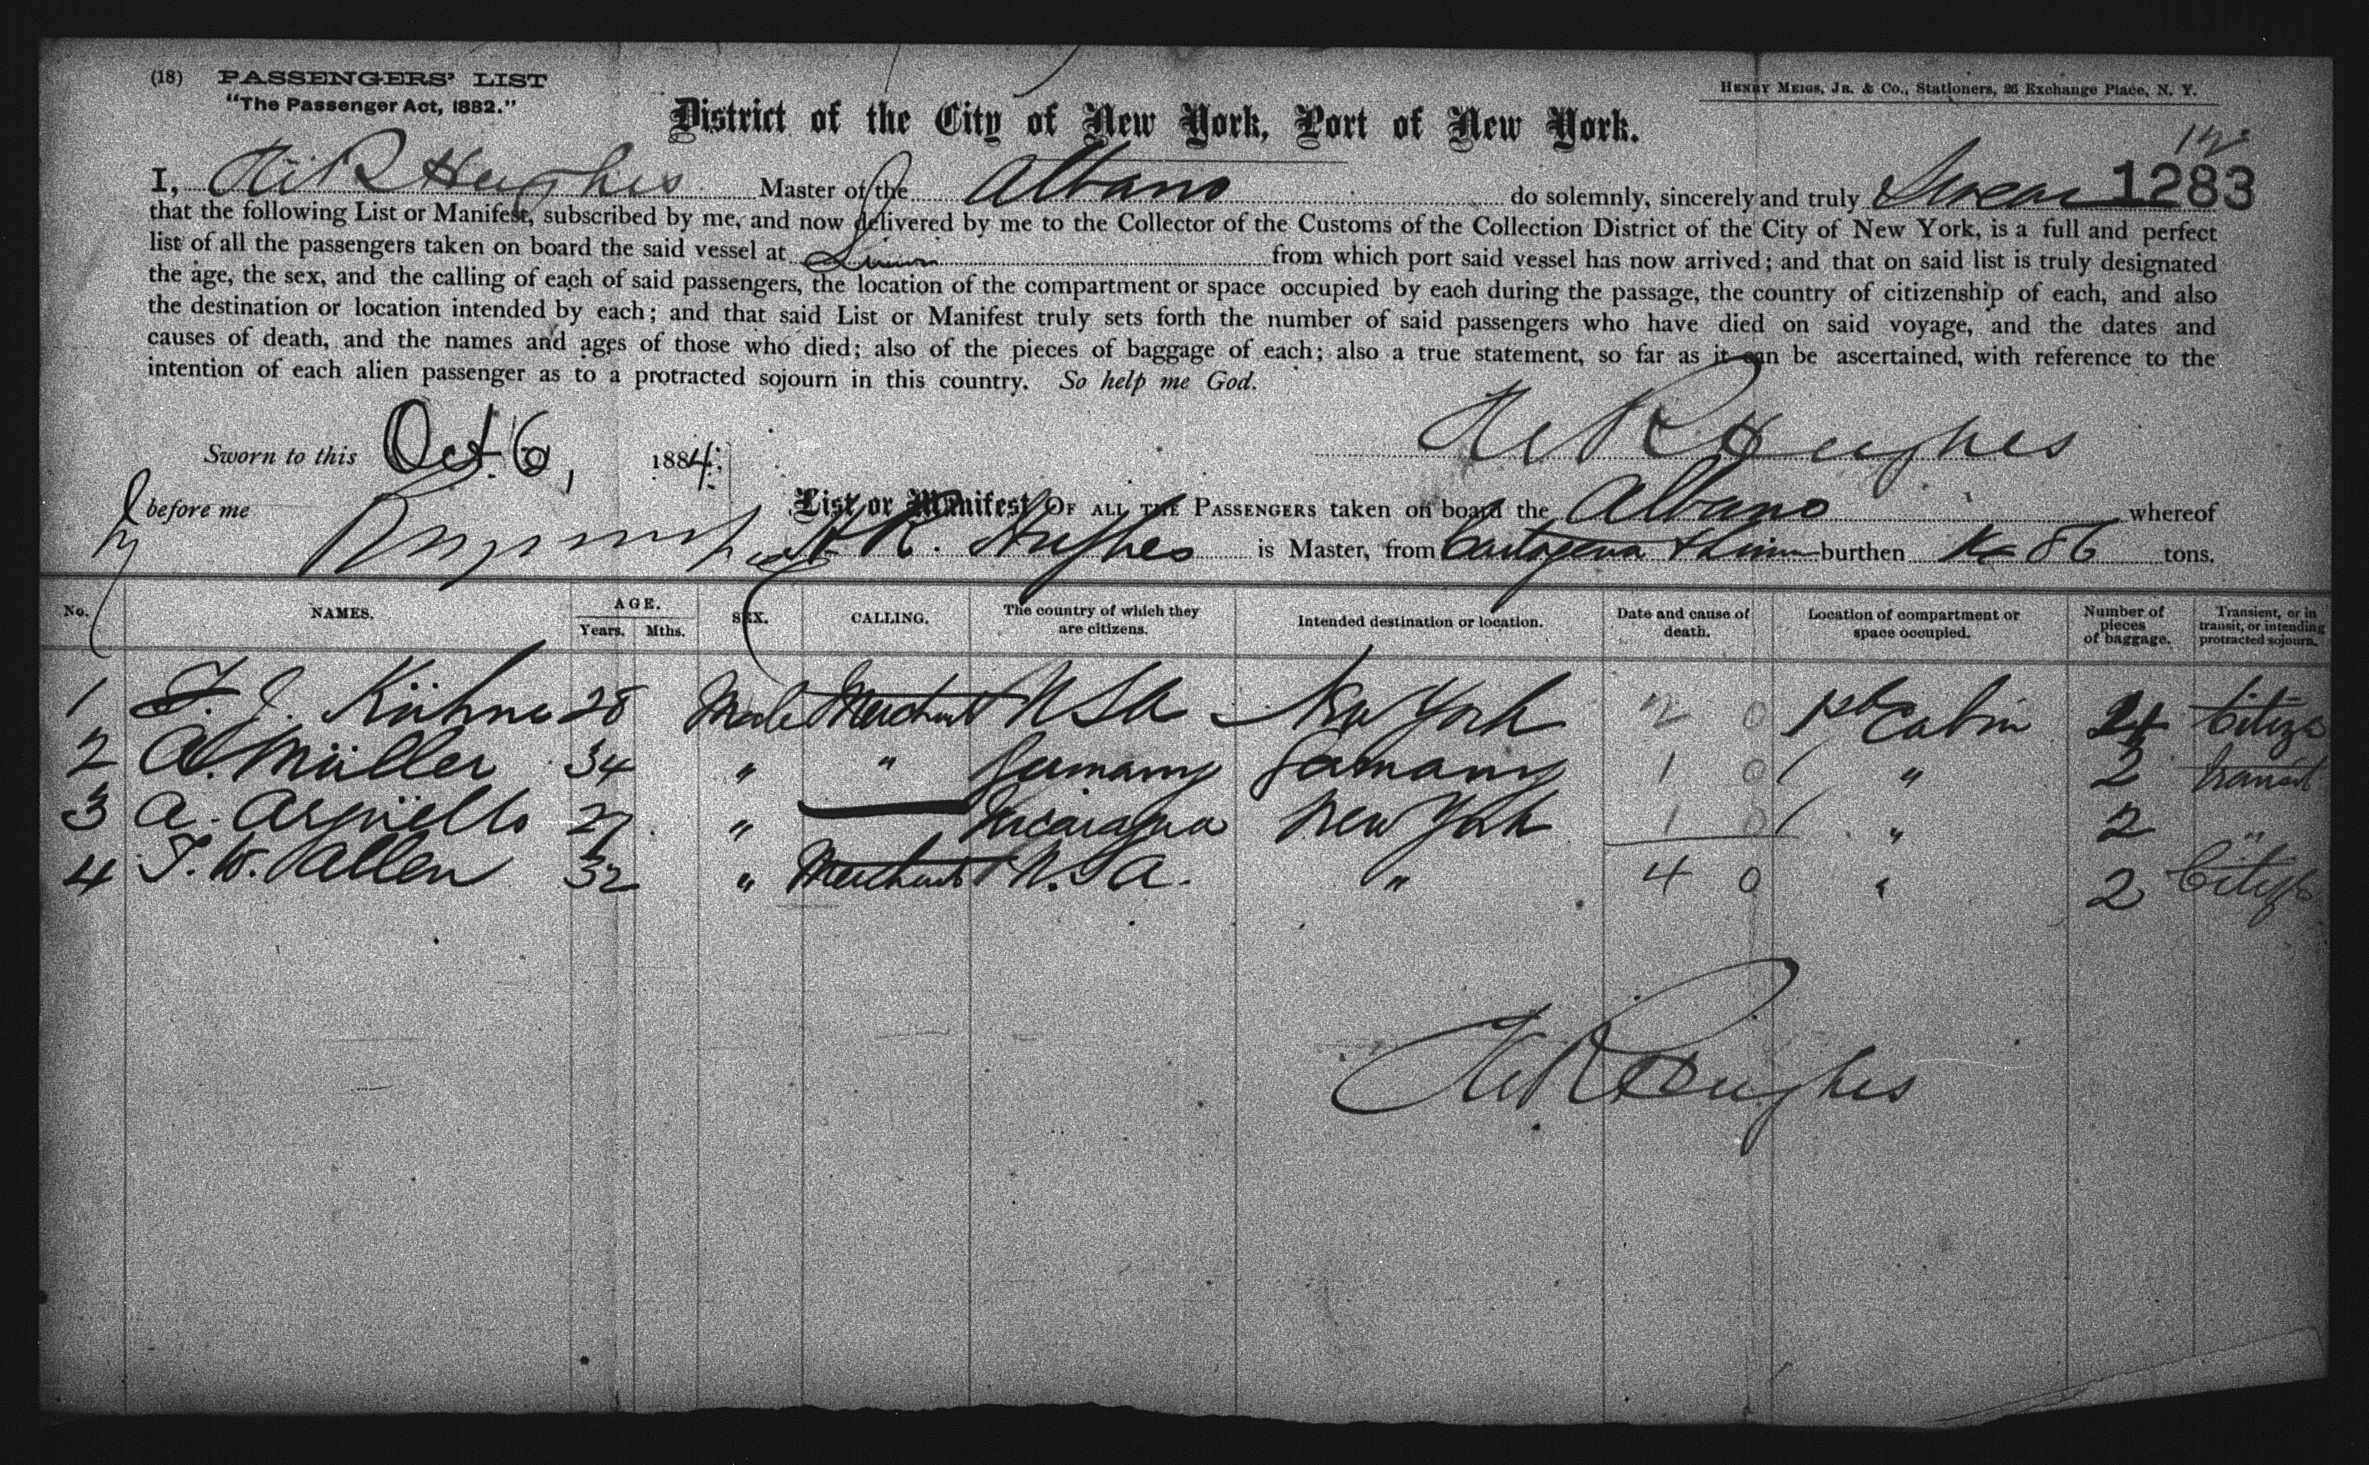 (18) PASSENGERS' LIST
"The Passenger Act, 1882."
HENRY MEIGS, JR. & CO., Stationers, 26 Exchange Place, N. Y.
District of the City of New York, Port of New York.
I, R Hughes Master of the Albano do solemnly, sincerely and truly Swear 1283
that the following List or Manifest, subscribed by me, and now delivered by me to the Collector of the Customs of the Collection District of the City of New York, is a full and perfect
list of all the passengers taken on board the said vessel at Limon from which port said vessel has now arrived; and that on said list is truly designated
the age, the sex, and the calling of each of said passengers, the location of the compartment or space occupied by each during the passage, the country of citizenship of each, and also
the destination or location intended by each; and that said List or Manifest truly sets forth the number of said passengers who have died on said voyage, and the dates and
causes of death, and the names and ages of those who died; also of the pieces of baggage of each; also a true statement, so far as it can be ascertained, with reference to the
intention of each alien passenger as to a protracted sojourn in this country. So help me God.
R Hughes
Sworn to this Oct 6, 1884
before me
List or Manifest OF ALL THE PASSENGERS taken on board the Albano whereof
R. Hughes is Master, from Cartagena & Limon burthen 86 tons.
No. NAMES. AGE. Years. Mths. SEX. CALLING. The country of which they are citizens. Intended destination or location. Date and cause of death. Location of compartment or space occupied. Number of pieces of baggage. Transient, or in transit, or intending protracted sojourn.
1 F. J. Kühne 28 Male Merchant USA New York 2 0 1st Cabin 4 Citizen
2 A. Müller 34 " " Germany Germany 1 0 " 2 Transit
3 A. Argüello 27 " Nicaragua New York 1 0 " 2 "
4 T. W. Allen 32 " Merchant U.S.A. " 4 0 " 2 Citizen
R Hughes